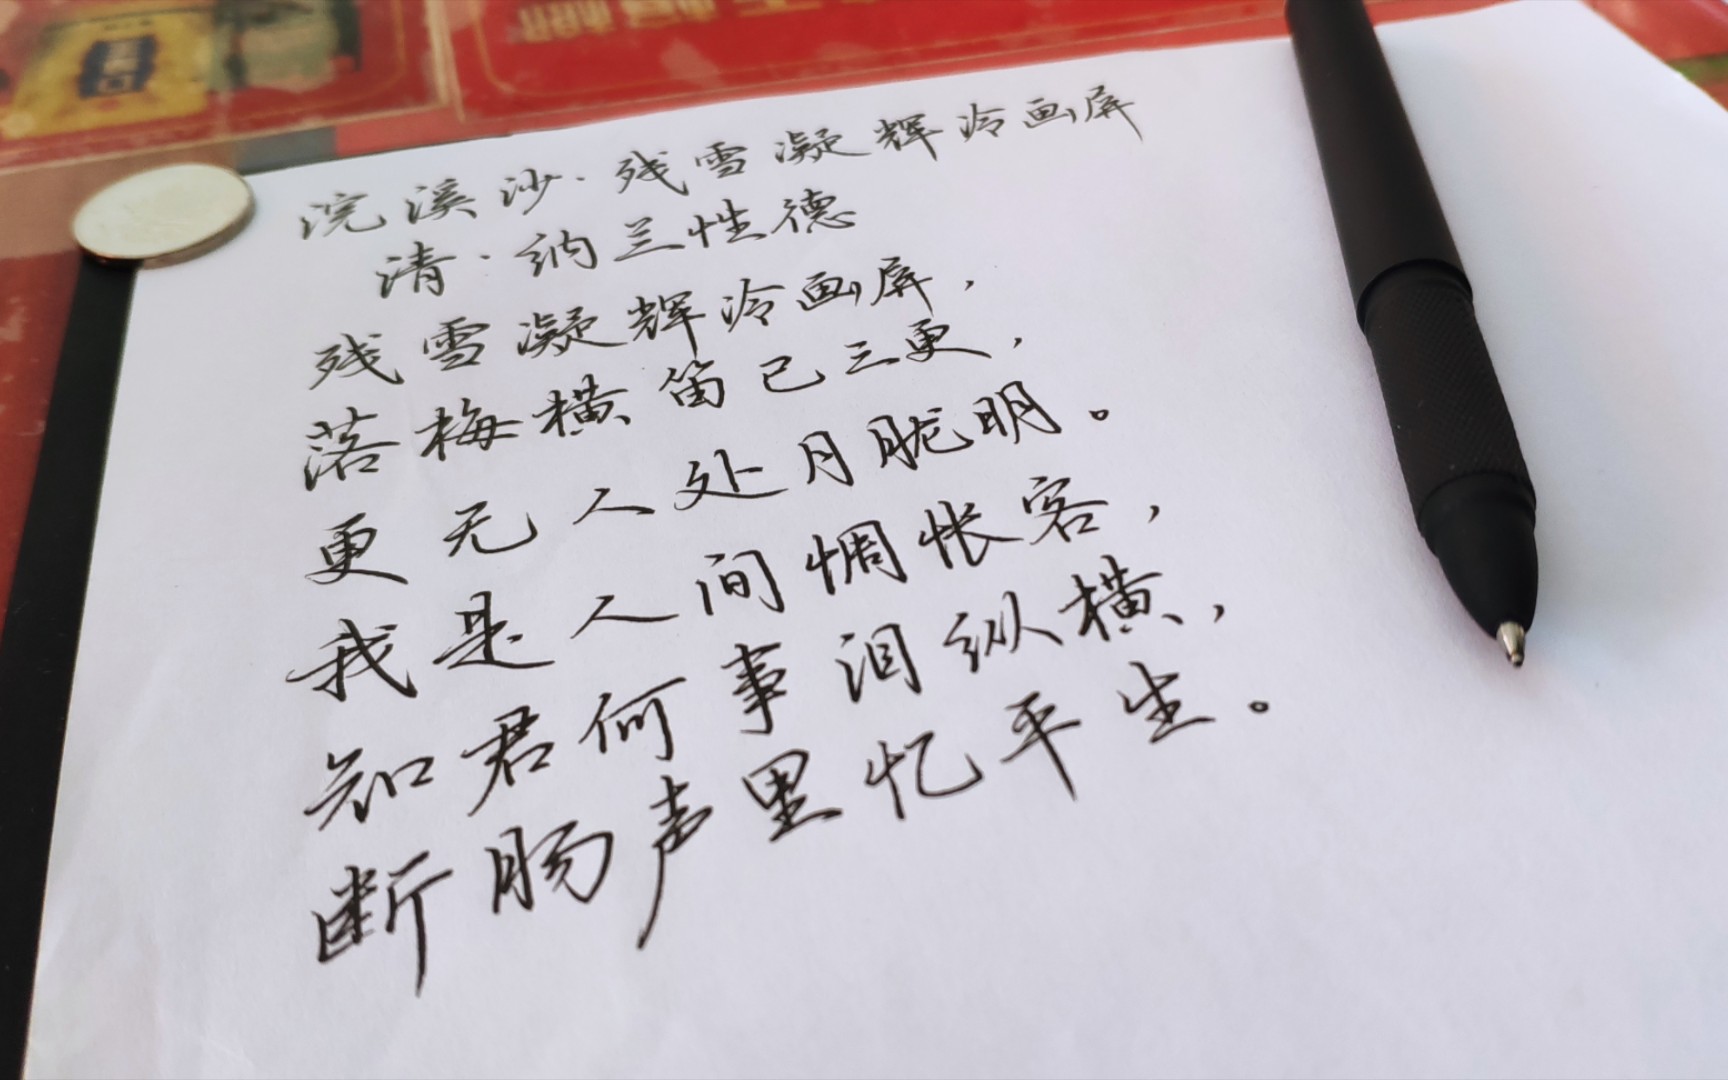 浣溪沙·残雪凝辉冷画屏
清·纳兰性德
残雪凝辉冷画屏，
落梅横笛已三更，
更无人处月胧明。
我是人间惆怅客，
知君何事泪纵横，
断肠声里忆平生。